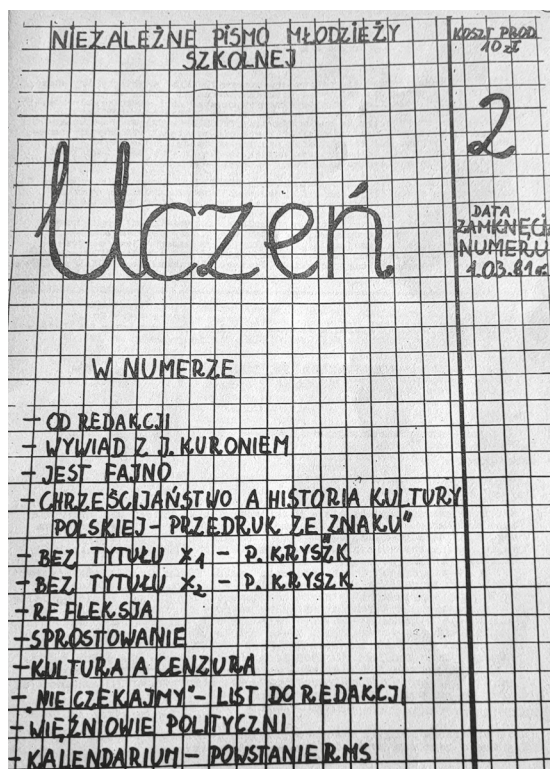 NIEZALEŻNE PISMO MŁODZIEŻY
SZKOLNEJ
KOSZT PROD
10 zł
2
Uczeń
DATA
ZAMKNĘCIA
NUMERU
1.03.81r.
W NUMERZE
- OD REDAKCJI
- WYWIAD Z J. KURONIEM
- JEST FAJNO
- CHRZEŚCIJAŃSTWO A HISTORIA KULTURY
POLSKIEJ - PRZEDRUK ZE "ZNAKU"
- BEZ TYTUŁU X1 - P. KRYSZK
- BEZ TYTUŁU X2 - P. KRYSZK
- REFLEKSJA
- SPROSTOWANIE
- KULTURA A CENZURA
- „NIE CZEKAJMY" - LIST DO REDAKCJI
- WIĘŹNIOWIE POLITYCZNI
- KALENDARIUM - POWSTANIE RMS